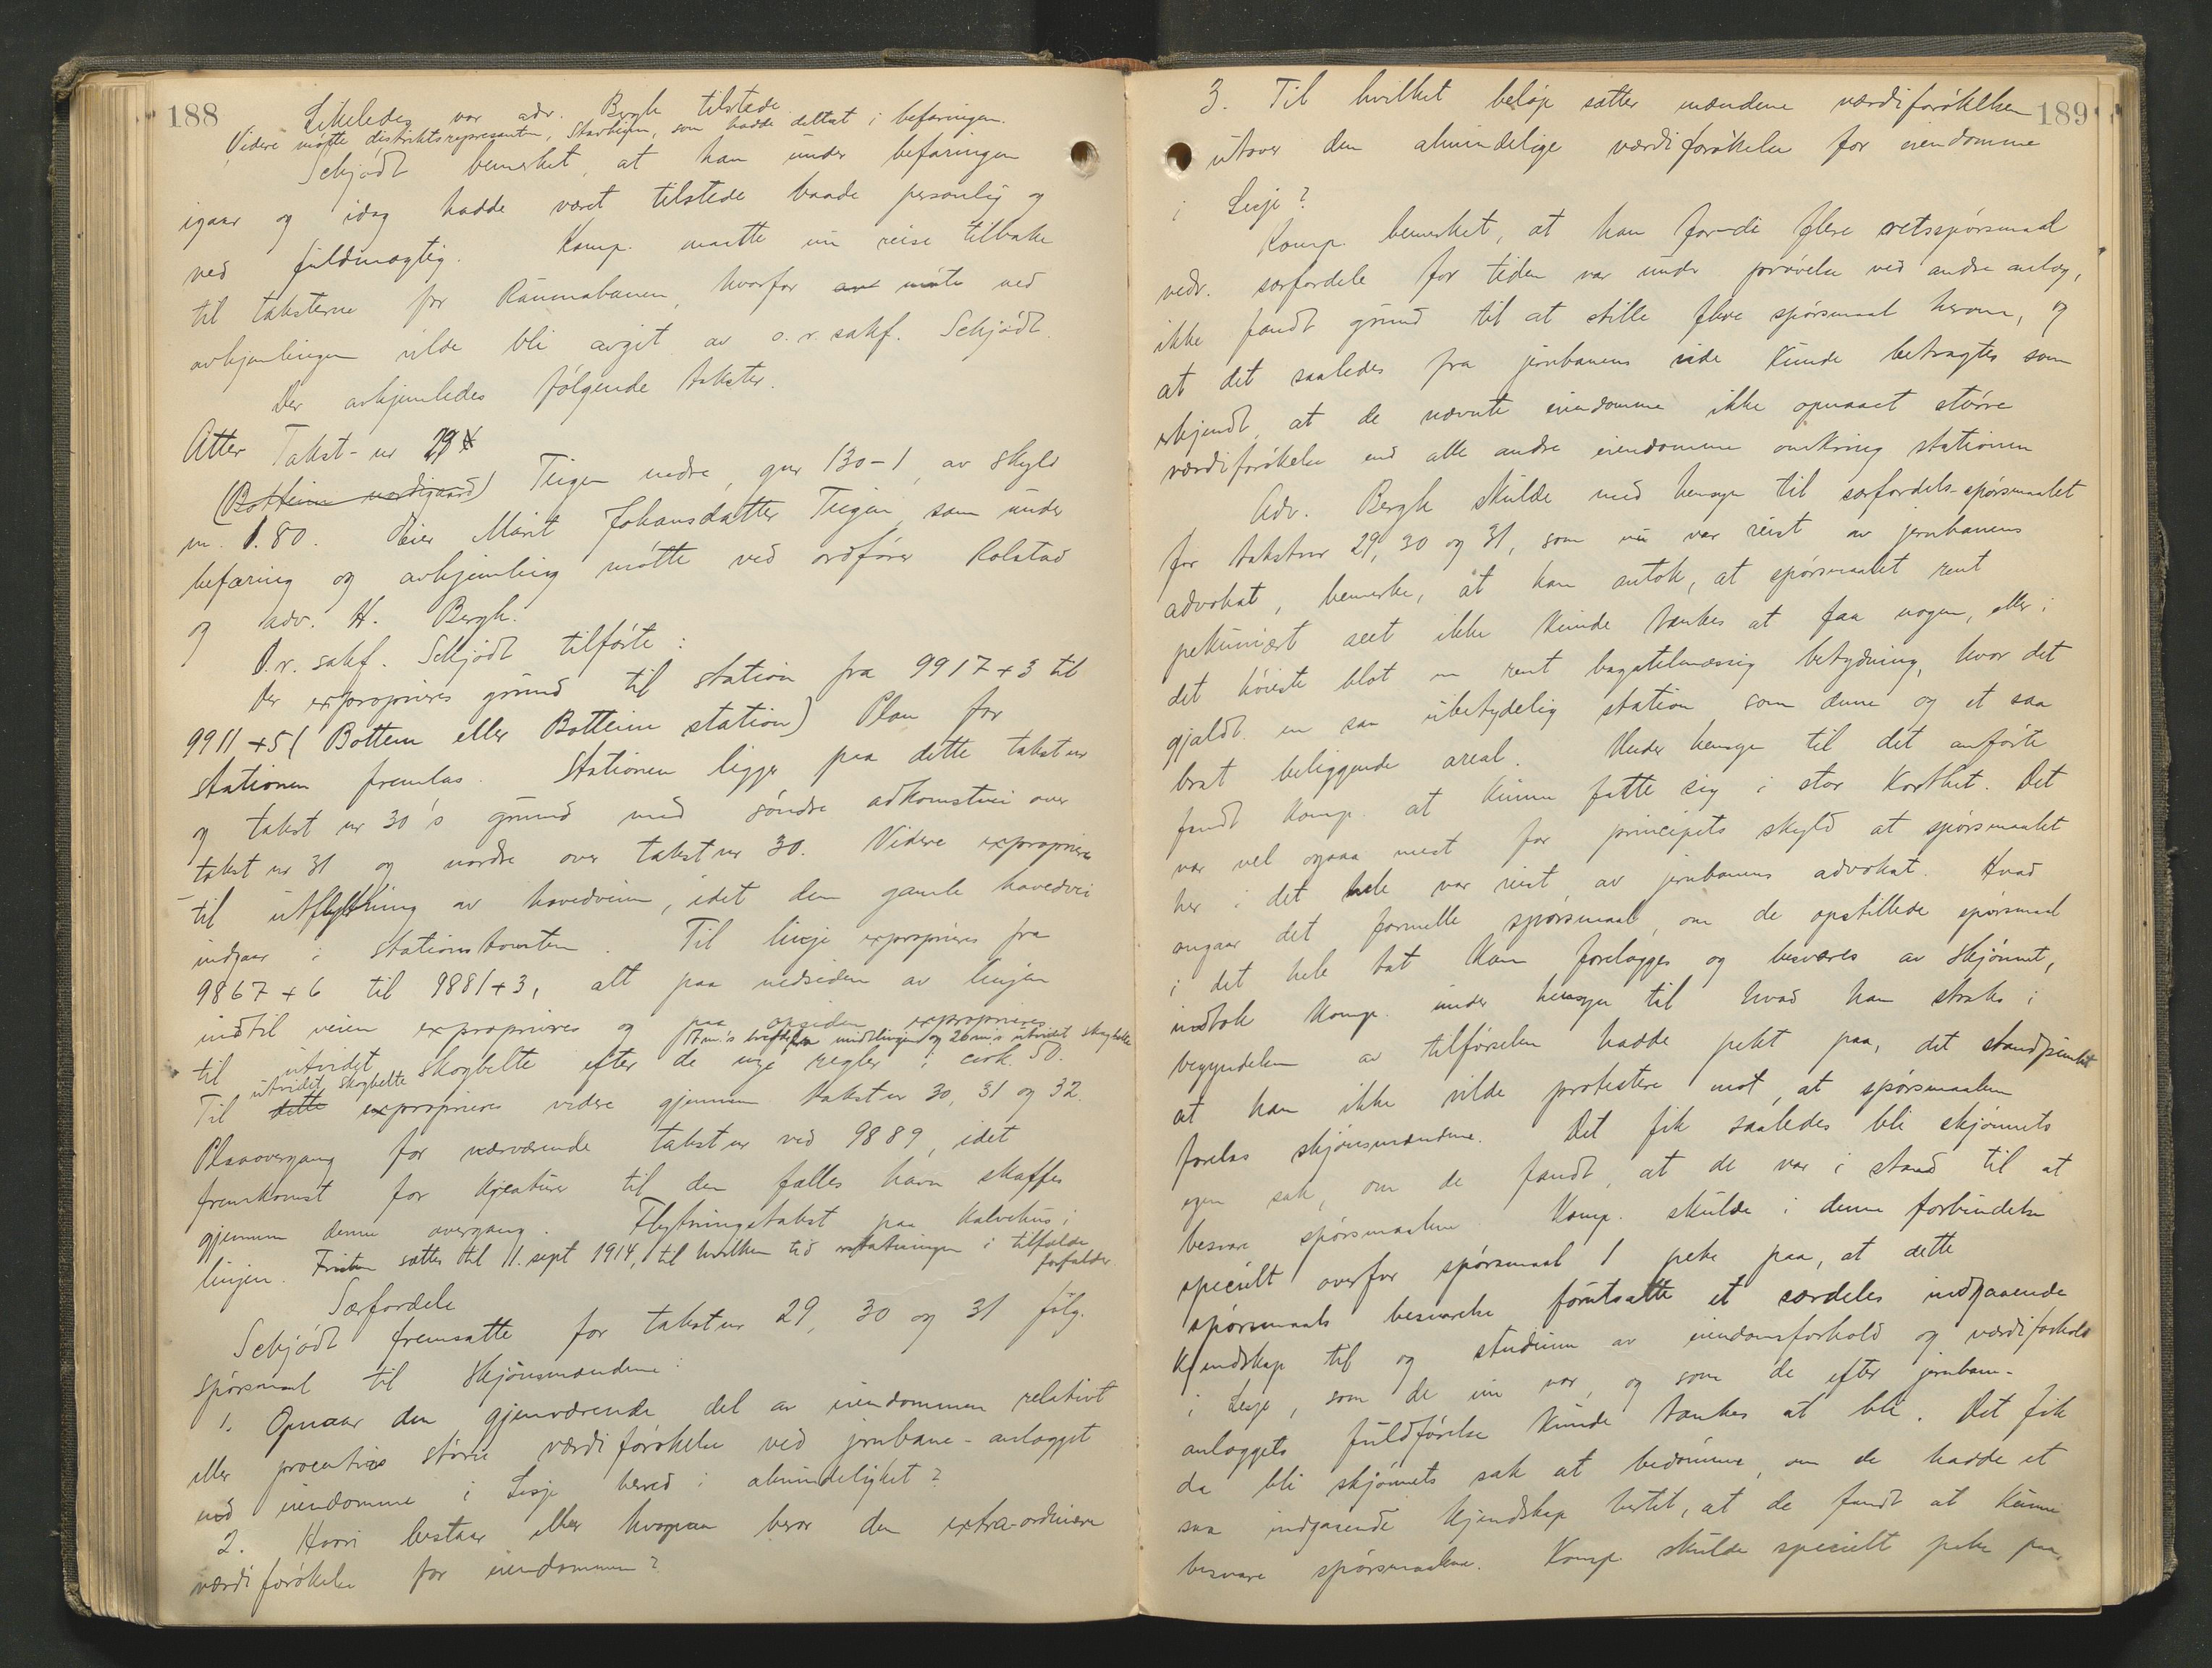 188
Likeledes var adv. Bergh tilstede.
Videre møtte distriktsrepresentn, Stavheim, som hadde deltat i befaringen.
Schjødt bemerket, at han under befaringen
igaar og idag hadde været tilstede baade personlig og
ved fuldmægtig. Komp. maatte nu reise tilbake
til taksterne for Raumabanen, hvorfor møte ved
avhjemlingen vilde bli avgit av o.r.sakf. Schjødt.
Der avhjemledes følgende takster.
Atter Takst-nr 29
(Bottheim nordigaard) Teigen nedre, gnr 130-1, av skyld
m. 1.80. Eier Marit Johansdatter Teigen, som under
befaring og avhjemling møtte ved ordfører Rolstad
og adv. H. Bergh.
O.r. sakf. Schjødt tilførte:
Der exproprieres grund til station fra 9917+3 til
9911+5 (Bottem eller Bottheim station) Plan for
stationen fremlas. Stationen ligger paa dette takstnr
og takst nr 30's grund med søndre adkomstvei over
takst nr 31 og nordre over takst nr 30. Videre exproprieres
til utflytning av hovedveien, idet den gamle hovedvei
indgaar i stationstomten. Til linje exproprieres fra
9867+6 til 9881+3, alt paa nedsiden av linjen
indtil veien exproprieres og paa opsiden exproprieres
17 m.'s bredde fra midtlinjen og 26 m.'s utvidet skogbelte
til utvidet skogbelte efter de nye regler i cirk. 50.
utvidet skogbelte
Til dette exproprieres videre gjennem takst nr 30, 31 og 32.
Planovergang for nærværende takst nr ved 9889, idet
fremkomst for kreaturer til den fælles havn skaffes
gjennem denne overgang. Flytningstakst paa kalvehus i
linjen. Fristen sættes til 11. sept 1914, til hvilken tid erstatningen i tilfælde
forfalder.
Særfordele
Schjødt fremsatte for takst nr 29, 30 og 31 følg.
spørsmaal til skjønsmændene:
1. Opnaar den gjenværende del av eiendommen relativt
eller procentvis større værdiforøkelse ved jernbane-anlægget
end eiendomme i Lesje herred i almindelighet?
2. Hvori bestaar eller hvorpaa beror den extra-ordinære
værdiforøkelse for eiendommen?
189
3. Til hvilket beløp sætter mændene værdiforøkelsen
utover den almindelige værdiforøkelse for eiendomme
i Lesje?
Komp. bemerket, at han fordi flere retsspørsmaal
vedr. særfordele for tiden var under prøvelse ved andre anlæg,
ikke fandt grund til at stille flere spørsmaal herom, og
at det saaledes fra jernbanens side kunde betragtes som
erkjendt, at de nævnte eiendomme ikke opnaaet større
værdiforøkelse end alle andre eiendomme omkring stationen
Adv. Bergh skulde med hensyn til særfordels-spørsmaalet
for takstnr 29, 30 og 31, som nu var reist av jernbanens
advokat, bemerke, at han antok, at spørsmaalet rent
pekuniært seet ikke kunde tænkes at faa nogen, eller i
det høieste blot en rent bagatelmæssig betydning, hvor det
gjaldt en saa ubetydelig station som denne og et saa
brat beliggende areal. Under hensyn til det anførte
fandt komp. at kunne fatte sig i stor korthet. Det
var vel ogsaa mest for principets skyld at spørsmaalet
her i det hele var reist av jernbanens advokat. Hvad
angaar det formelle spørsmaal, om de opstillede spørsmaal
i det hele tat kan forelægges og besvares av skjønnet,
indtok komp. under hensyn til hvad han straks i
begyndelsen av tilførselen hadde pekt paa, det standpunkt
at han ikke vilde protestere mot, at spørsmaalene
forelas skjønsmændene. Det fik saaledes bli skjønnets
egen sak, om de fandt, at de var i stand til at
besvare spørsmaalene. Komp. skulde i denne forbindelse
specielt overfor spørsmaal 1 peke paa, at dette
spørsmaals besvarelse forutsatte et særdeles indgaaende
kjendskap til og studium av eiendomsforhold og værdiforhold
i Lesje, som de nu var, og som de efter jernbane-
anlæggets fuldførelse kunde tænkes at bli. Det fik
da bli skjønnets sak at bedømme, om de hadde et
saa indgaaende kjendskap hertil, at de fandt at kunne
besvare spørsmaalene. Komp. skulde specielt peke paa,